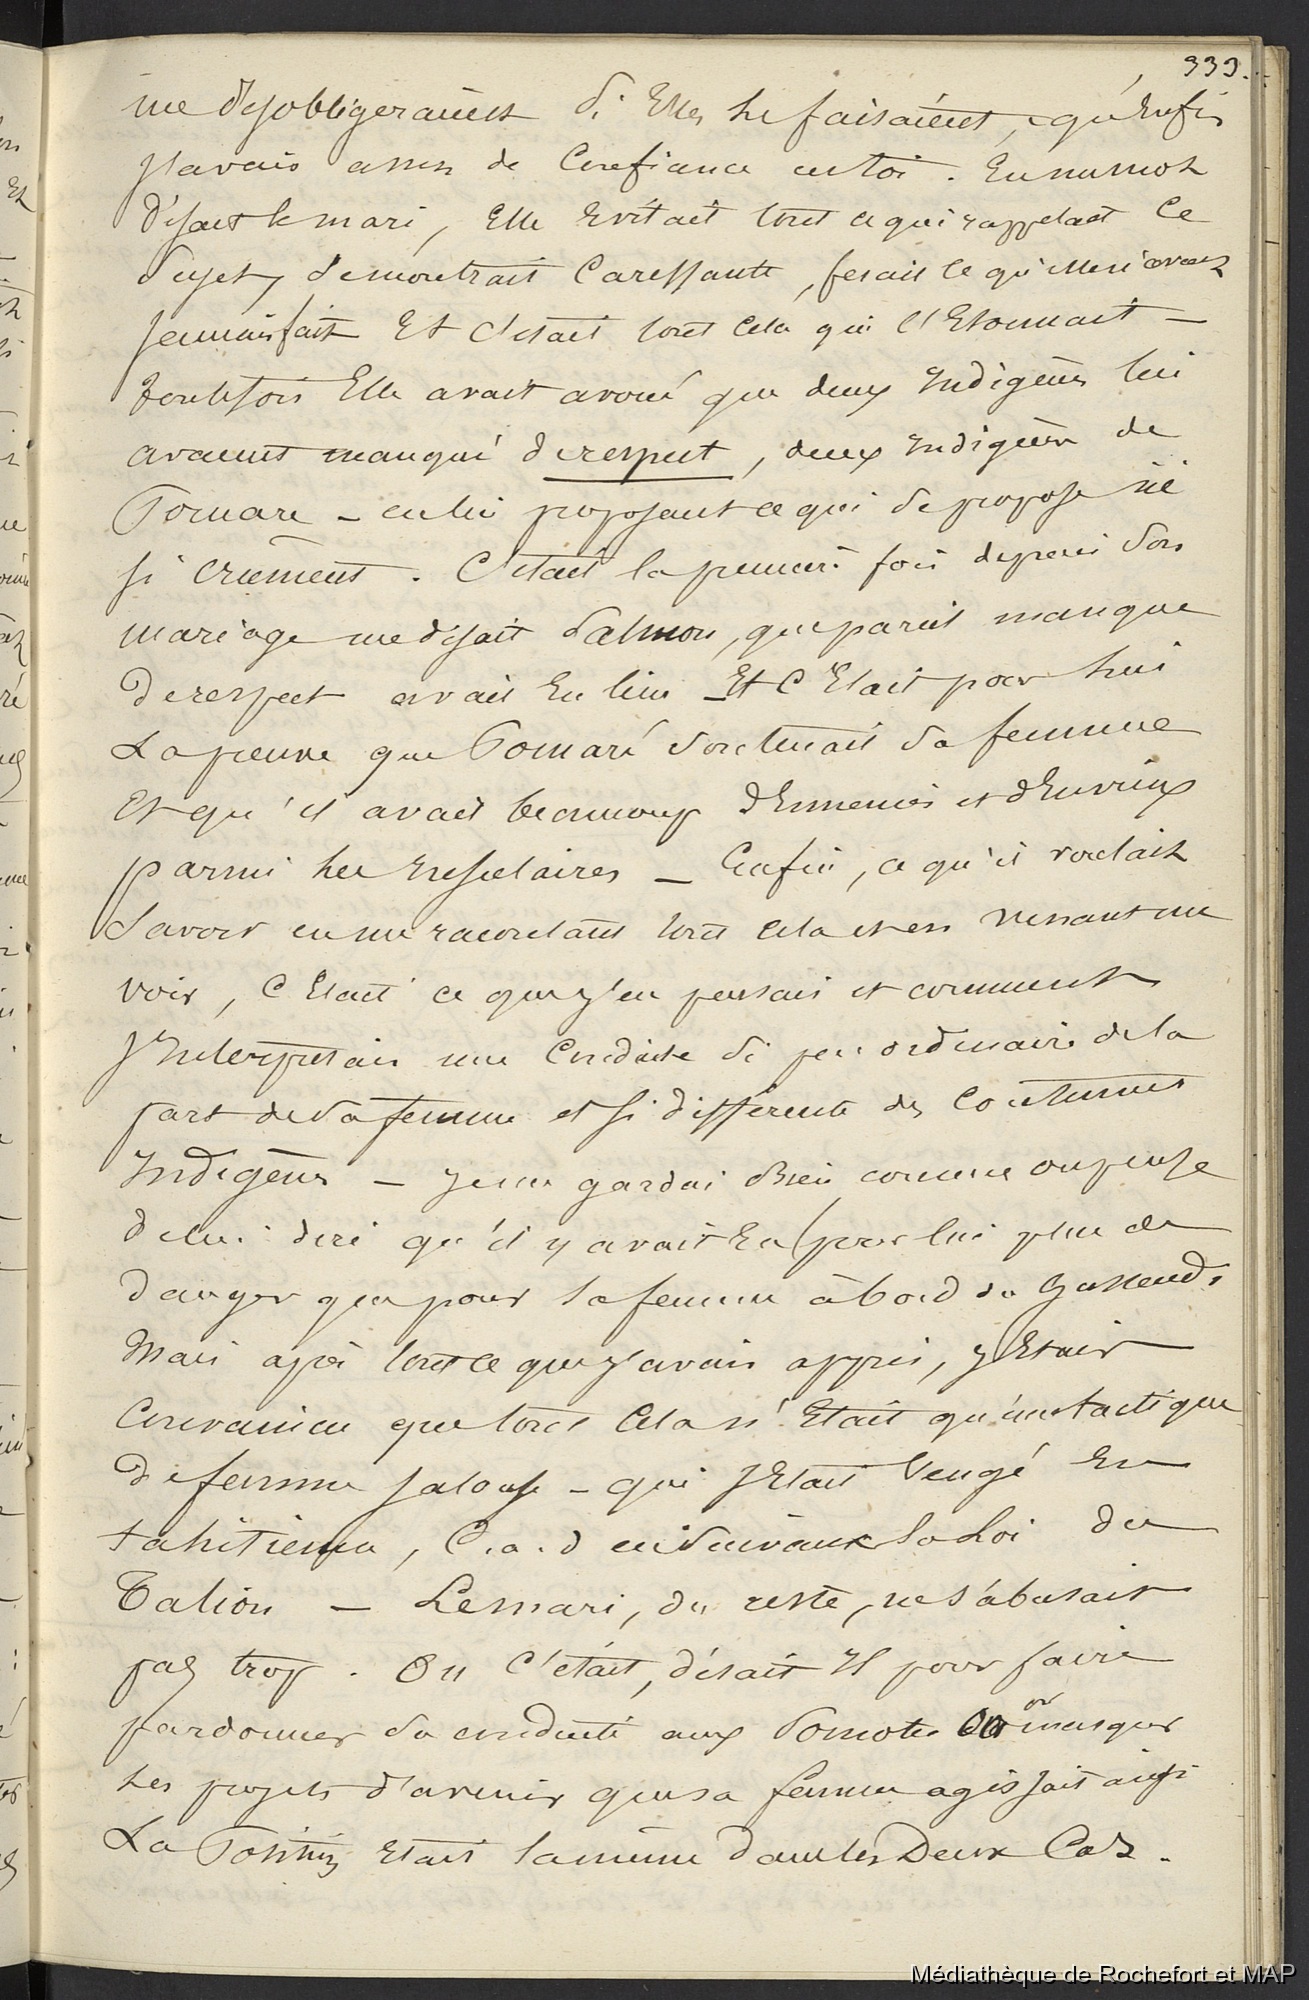 333.
me désobligeraient si Elles se faisaient, qu'Enfin
j'avais assez de Confiance en toi. En un mot
disait le mari, Elle Evitait tout ce qui rappelait ce
sujet, se montrait Caressante, fesait ce qu'elle n'avait
jamais fait Et c'était tout cela qui l'Etonnait —
toutefois Elle avait avoué que deux Indigènes lui
avaient manqué de respect, deux Indigènes de
Pomare — en lui proposant ce qui se propose ici
si crûment. C'était la première fois depuis son
mariage me disait Salmon, que pareil manque
de respect avait Eu lieu — Et C'Etait pour lui
La preuve que Pomaré soutenait sa femme
Et qu'il avait beaucoup d'Ennemis et d'Envieux
parmi les Insulaires — Enfin, ce qu'il voulait
savoir en me racontant tout cela et en venant me
voir, C'Etait ce que j'en pensais et comment
j'Interprétais une Conduite si peu ordinaire de la
part de sa femme et si différente des Coutumes
Indigènes — Je me gardai bien comme on pense
de lui dire qu'il y avait Eu pour lui plus de
danger que pour sa femme à bord du Gassendi
Mais après tout ce que j'avais appris, j'Etais
Convaincu que tout Cela n'Etait qu'une tactique
de femme jalouse — qui s'Etait Vengé En
tahitienne, C.a.d en suivant la Loi du
Talion — Le mari, du reste, ne s'abusait
pas trop. Ou C'était, disait Il pour faire
pardonner sa conduite aux ou masquer
ses projets d'avenir que sa femme agissait ainsi
La Etait la même dans les Deux Cas.
Médiathèque de Rochefort et MAP